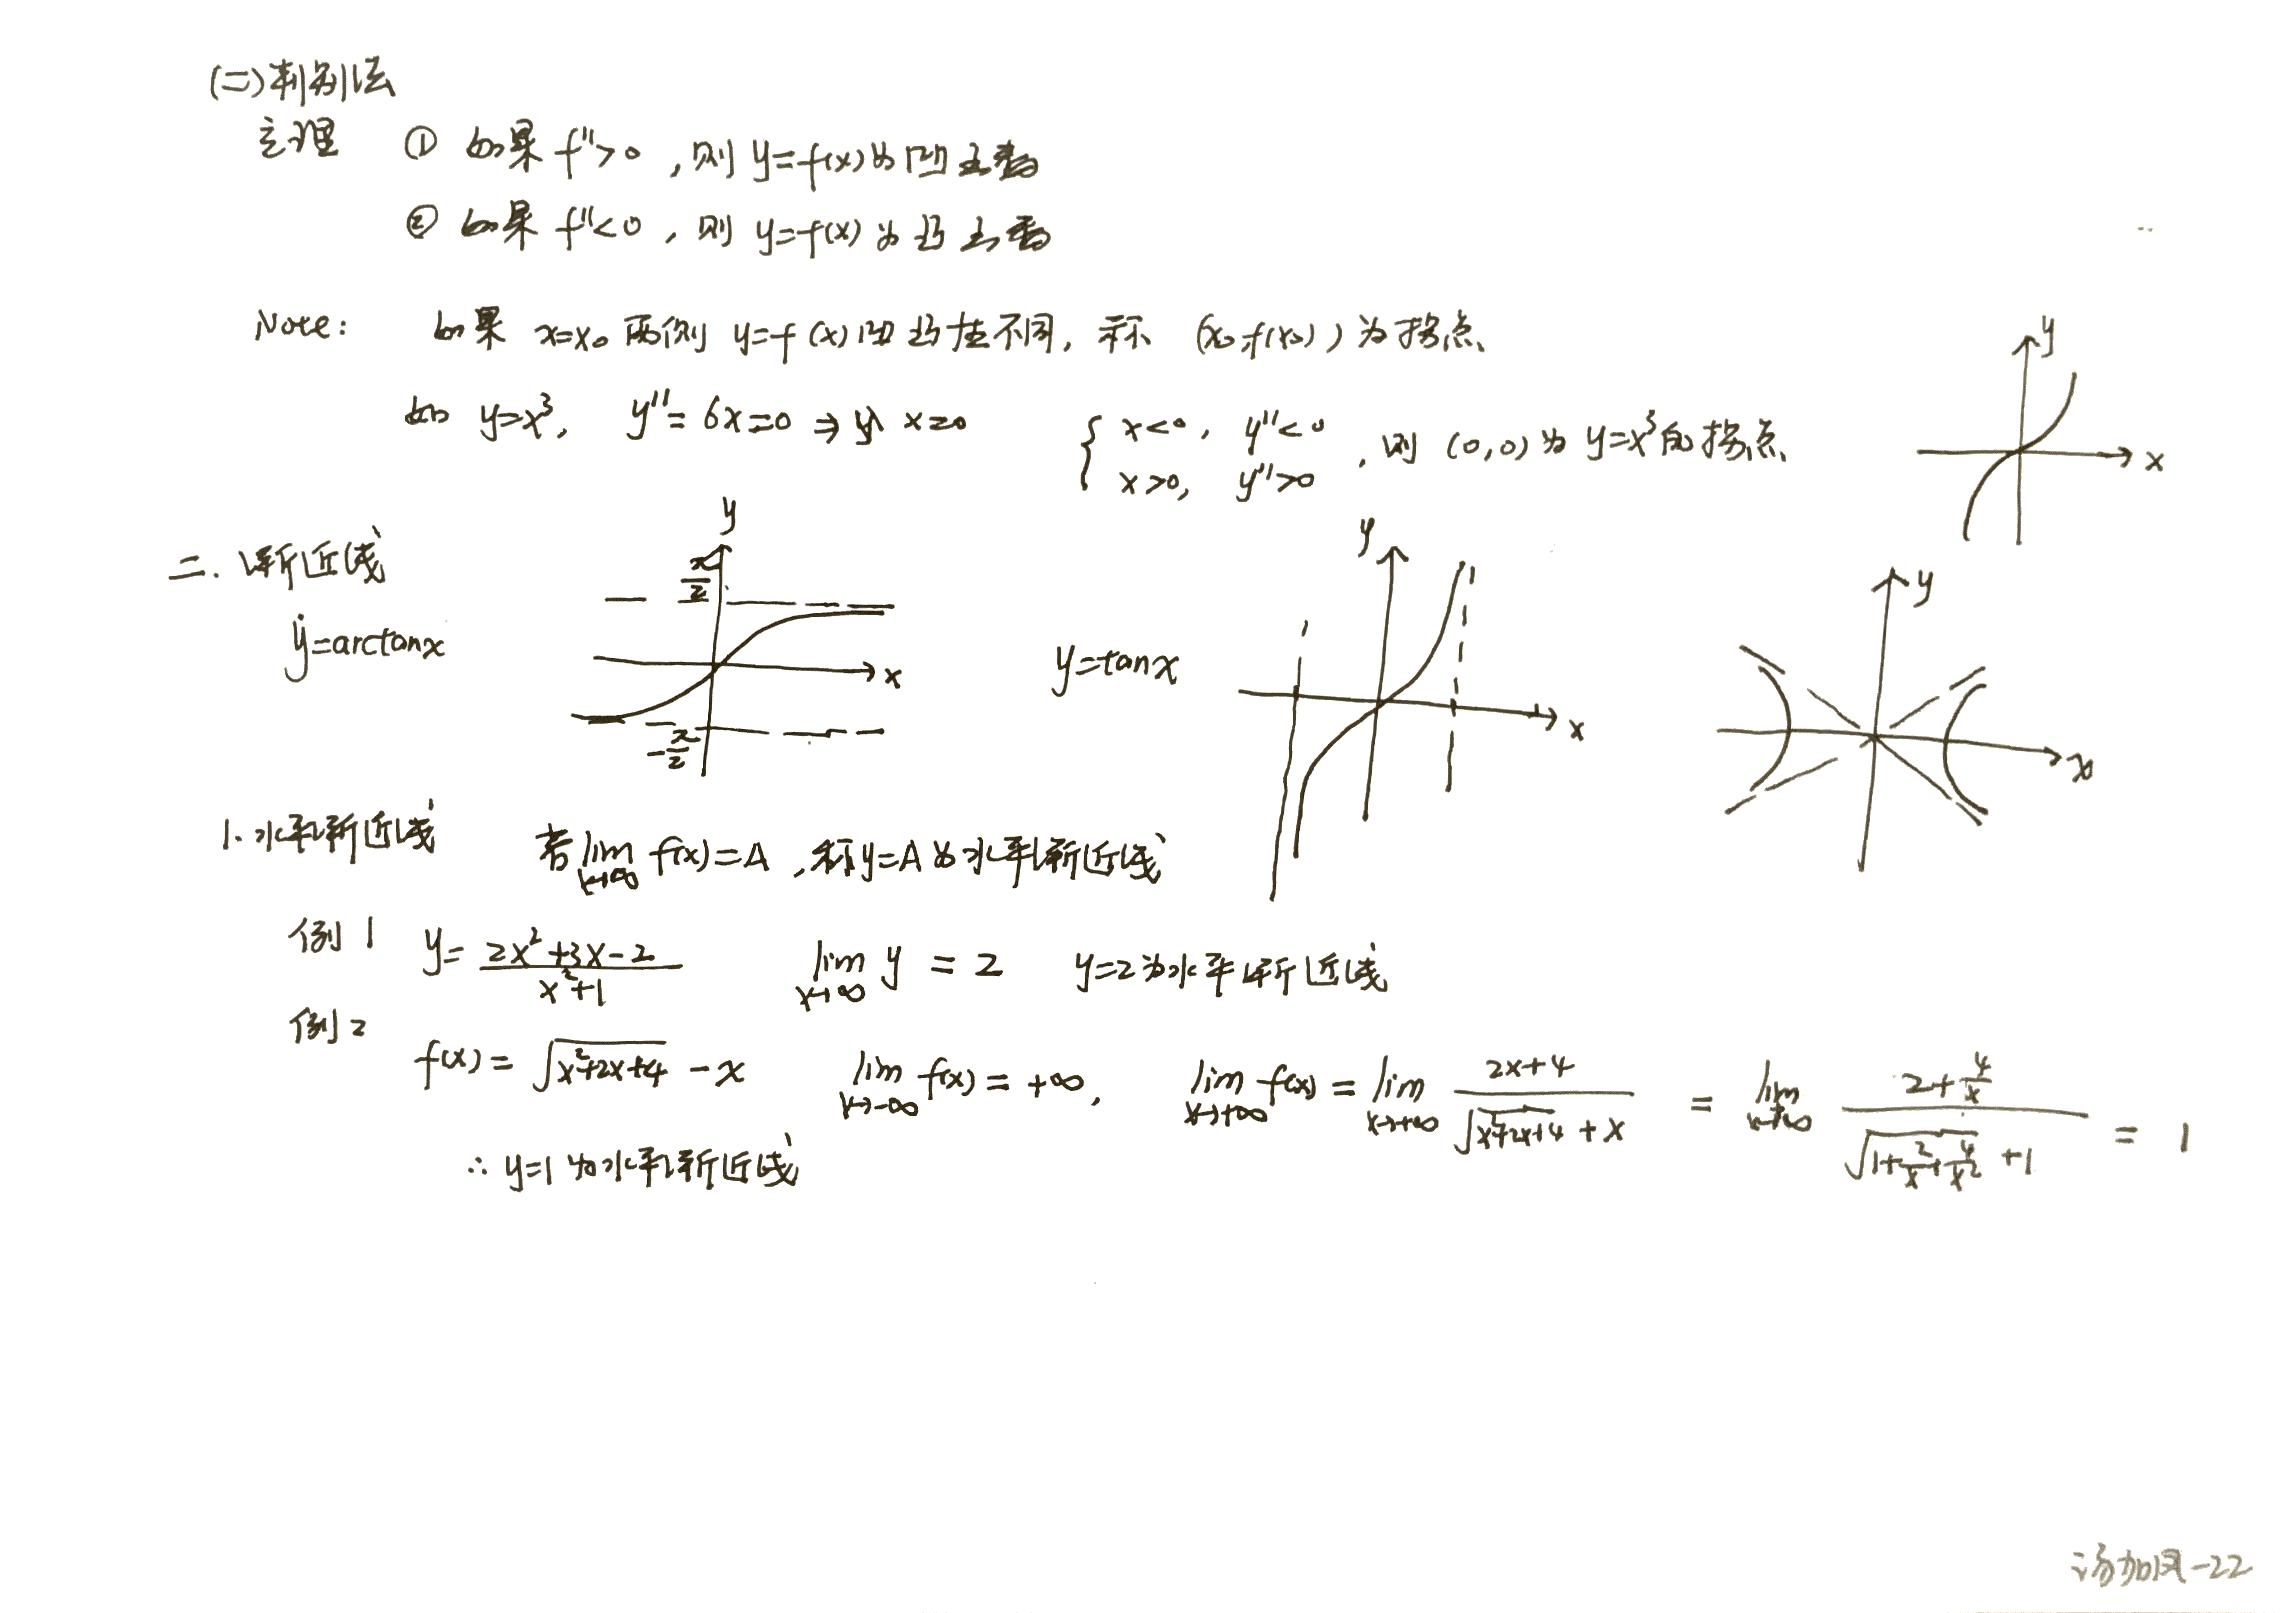 (二)判别法
定理 ① 如果 f''>0 ,则 y=f(x)为凹函数
② 如果 f''<0 ,则 y=f(x)为凸函数
Note: 如果 x=x₀ 两侧 y=f(x)凹凸性不同, 称 (x₀,f(x₀))为拐点
如 y=x³, y''=6x=0 ⇒ x=0 { x<0, y''<0 x>0, y''>0 ,则 (0,0)为 y=x³的拐点
y
x
二. 渐近线
y=arctanx
y
π/2
x
-π/2
y=tanx
y
x
y
x
1. 水平渐近线 若 lim x→∞ f(x)=A ,称y=A为水平渐近线
例1 y= (2x²+3x-2)/(x²+1) lim x→∞ y = 2 y=2为水平渐近线
例2 f(x)= √(x²+2x+4) - x lim x→-∞ f(x)=+∞, lim x→+∞ f(x)= lim x→+∞ (2x+4)/(√(x²+2x+4) + x) = lim x→+∞ (2+4/x)/(√(1+2/x+4/x²) +1) = 1
∴ y=1 为水平渐近线
汤加凤-22